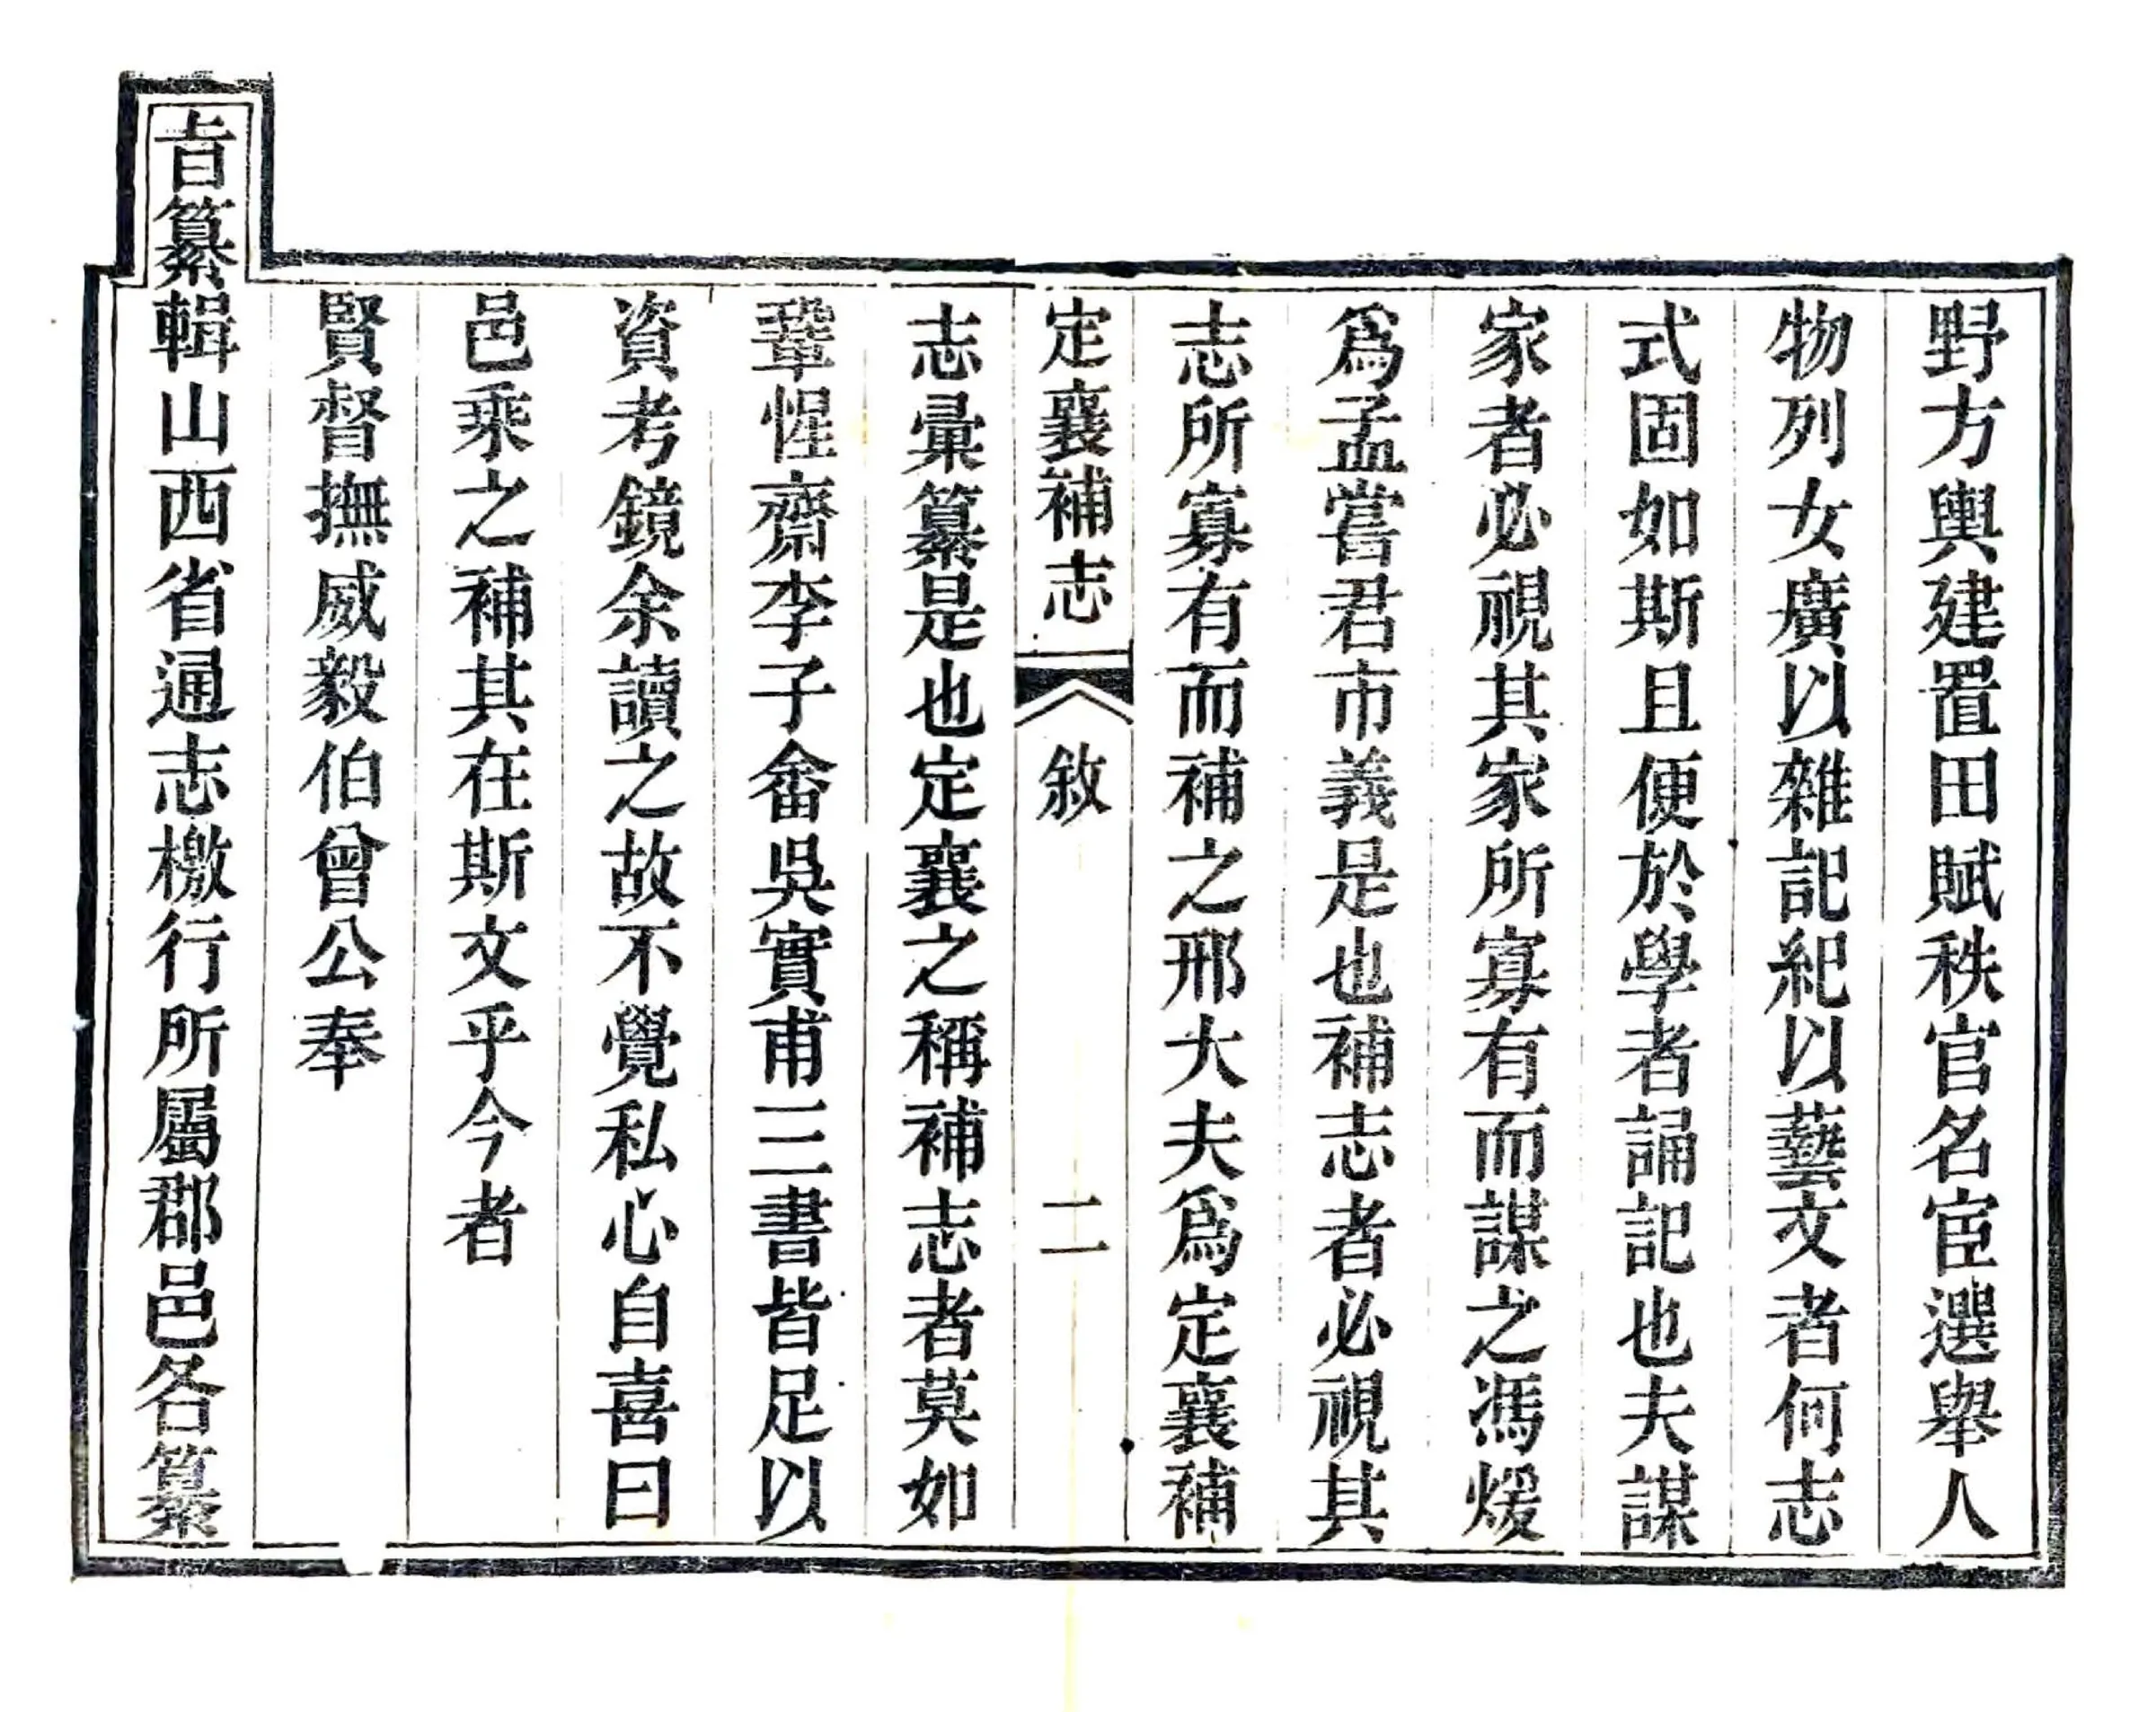 野方輿建置田賦秩官名宦選舉人
物列女廣以雜記紀以藝文者何志
式固如斯且便於學者誦記也夫謀
家者必視其家所寡有而謀之馮煖
爲孟嘗君市義是也補志者必視其
志所寡有而補之邢大夫爲定襄補
定襄補志 敘 二
志彙纂是也定襄之稱補志者莫如
鞏惺齋李子畬吳實甫三書皆足以
資考鏡余讀之故不覺私心自喜曰
邑乘之補其在斯文乎今者
賢督撫威毅伯曾公奉
旨纂輯山西省通志檄行所屬郡邑各纂